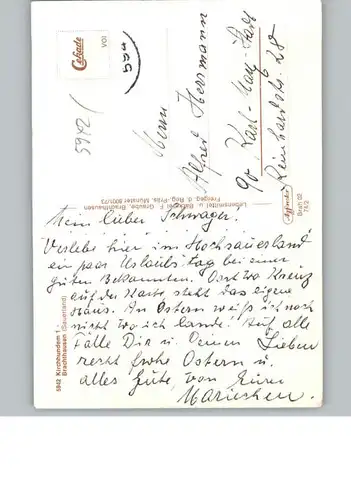 Cekade
VOI
5942/
Herrn
Alfred Herrmann
90 Karl-Marx-Stadt
Reinhardtstr. 28
Lebensmittel u. Bäckerei F. Graube, Brachthausen
Freigeg. d. Reg.-Präs. Münster 8001/73
Best 02
74/2
5942 Kirchhundem 1 -
Brachthausen (Sauerland)
Mein lieber Schwager,
Verlebe hier im Hochsauerland
ein paar Urlaubstag bei einer
guten Bekannten. Dort wo Kreuz
auf der Karte steht das eigene
Haus. An Ostern weiß ich noch
nicht wo ich lande! Auf alle
Fälle Dir u. Deinen Lieben
recht frohe Ostern u.
alles Gute, von Eurer
Mariechen.